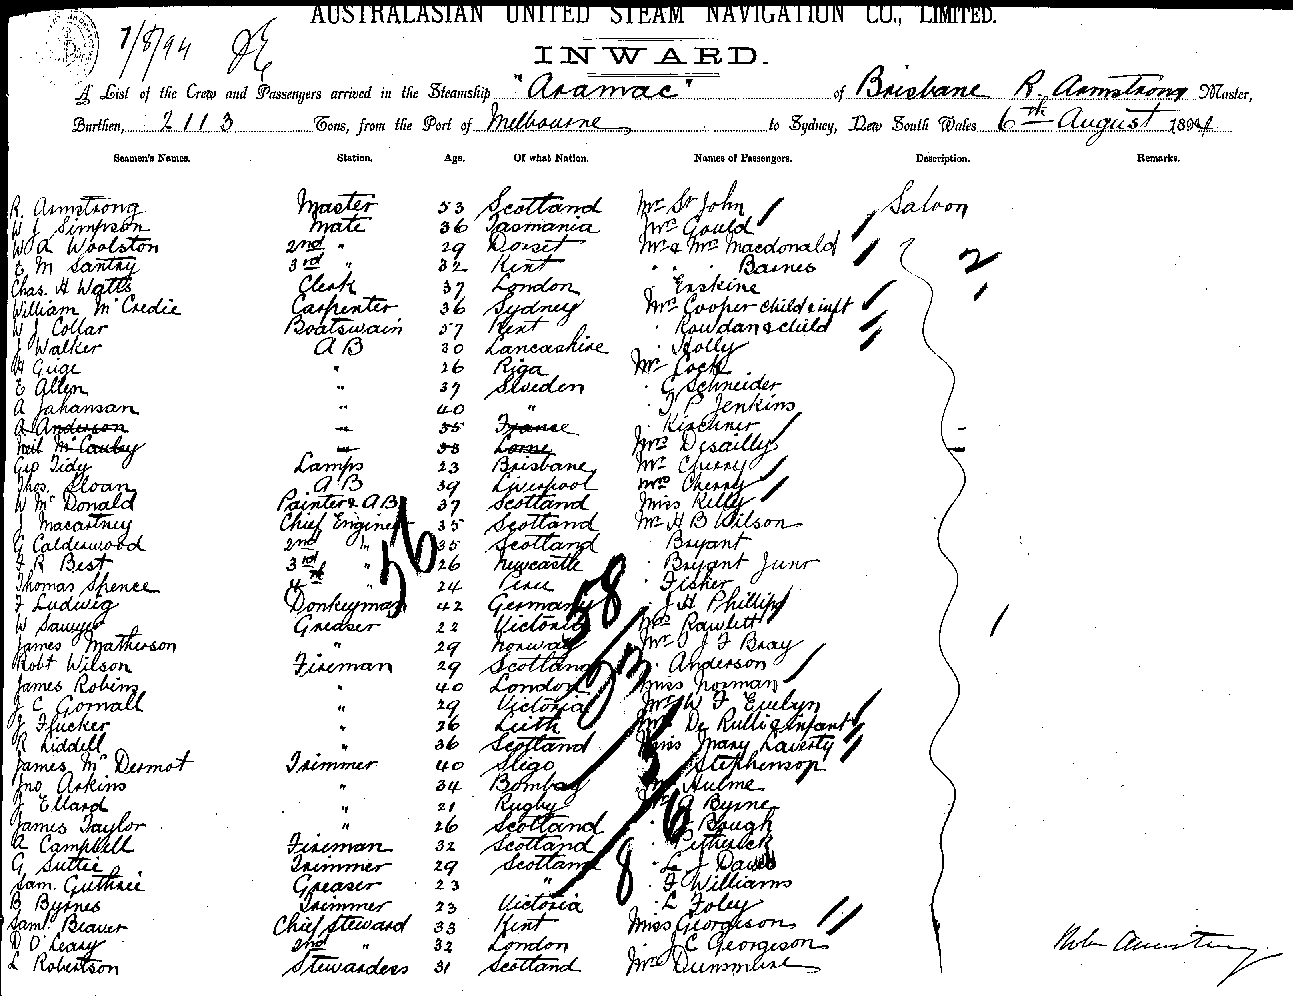 AUSTRALASIAN UNITED STEAM NAVIGATION CO., LIMITED.
7/8/94
INWARD.
A List of the Crew and Passengers arrived in the Steamship "Aramac" of Brisbane R. Armstrong Master,
Burthen, 2113 Tons, from the Port of Melbourne to Sydney, New South Wales 6th August 1894
Seamen's Names. Station. Age. Of what Nation. Names of Passengers. Description. Remarks.
R. Armstrong Master 53 Scotland Mr St John Saloon
W J Simpson Mate 36 Tasmania Mrs Gould
W A Woolston 2nd " 29 Dorset Mr & Mrs Macdonald
E M Santry 3rd " 32 Kent " " Baines 2
Chas. H Watts Clerk 37 London " Erskine
William McCredie Carpenter 36 Sydney Mrs Cooper child & inft
W J Collar Boatswain 57 Kent " Rowdan & child
J Walker A B 30 Lancashire " Holly
H Guge " 26 Riga Mr Cock
E Allen " 37 Sweden " C Schneider
A Johansan " 40 " " J P Jenkins
A Anderson " 55 France " Kirchner
Neil McCauley " 53 Lorne Mrs Desailly
Geo Tidy Lamps 23 Brisbane Mr Cherry
Thos. Sloan A B 39 Liverpool Mrs Cherry
W McDonald Painter & AB 37 Scotland Miss Kelly
J Macartney Chief Engineer 35 Scotland Mr H B Wilson
G Calderwood 2nd " 35 Scotland " Bryant
F R Best 3rd " 26 Newcastle " Bryant Junr
Thomas Spence 4th " 24 Peru " Fisher
F Ludwig Donkeyman 42 Germany " J H Phillips
W Sawyer Greaser 22 Victoria Mrs Rawlett
James Matherson " 29 Norway Mr P J F Bray
Robt Wilson Fireman 29 Scotland " Anderson
James Robins " 40 London Miss Norman
J C Gomall " 29 Victoria Mr W F Evelyn
J Flucker " 26 Leith De Rulli & Infant
R Liddell " 36 Scotland Miss Mary Laverty
James McDermot Trimmer 40 Sligo " Stephenson
Jno Arkins " 34 Bombay Mr Hulme
J Ellard " 21 Rugby Byrne
James Taylor " 26 Scotland Bough
A Campbell Fireman 32 Scotland " Petherick
G Suttie Trimmer 29 Scotland " L J Davis
Sam. Guthrie Greaser 23 " " F Williams
B Byrnes Trimmer 23 Victoria " L Foley
Saml Beaver Chief Steward 33 Kent Miss Georgeson
D O'Leary 2nd " 32 London " J C Georgeson
L Robertson Stewardess 31 Scotland Mrs Dunsmure
56
58
8
6